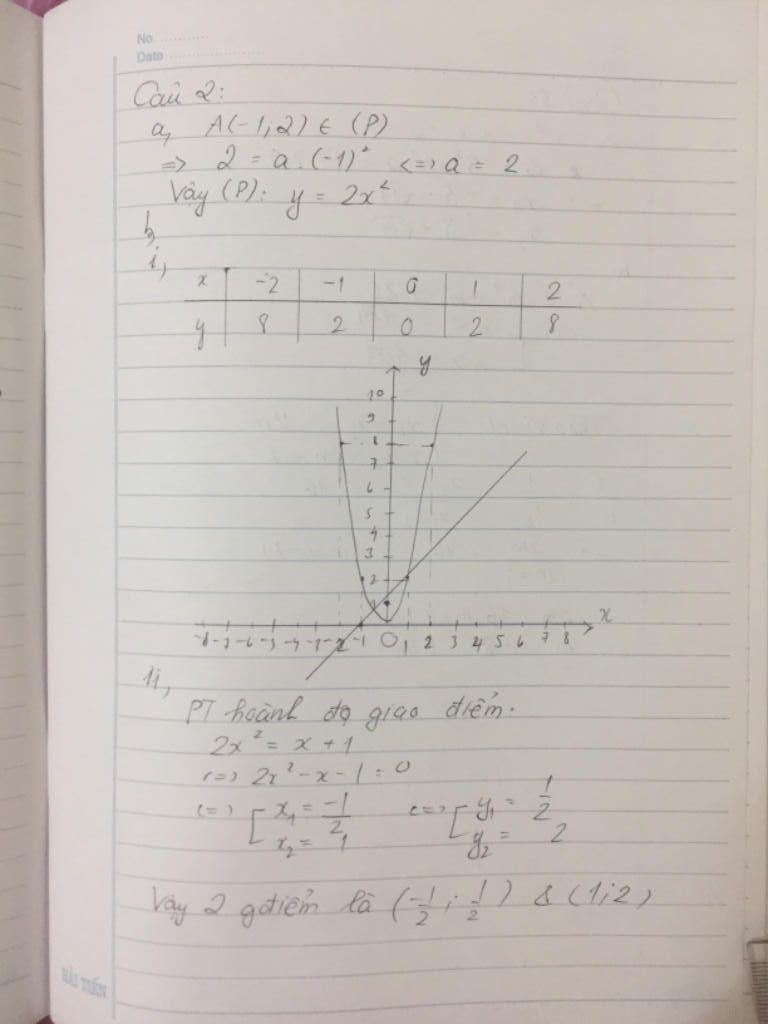 No. ............
Date ........................
Câu 2:
a, A(-1; 2) ∈ (P)
=> 2 = a.(-1)² <=> a = 2
Vậy (P): y = 2x²
b,
i,
x -2 -1 0 1 2
y 8 2 0 2 8
y
10
9
8
7
6
5
4
3
2
1
x
-8 -7 -6 -5 -4 -3 -2 -1 O 1 2 3 4 5 6 7 8
ii,
PT hoành độ giao điểm.
2x² = x + 1
<=> 2x² - x - 1 = 0
<=> [ x₁ = -1/2 <=> [ y₁ = 1/2
x₂ = 1 y₂ = 2
Vậy 2 gđiểm là (-1/2; 1/2) & (1; 2)
HẢI TIẾN